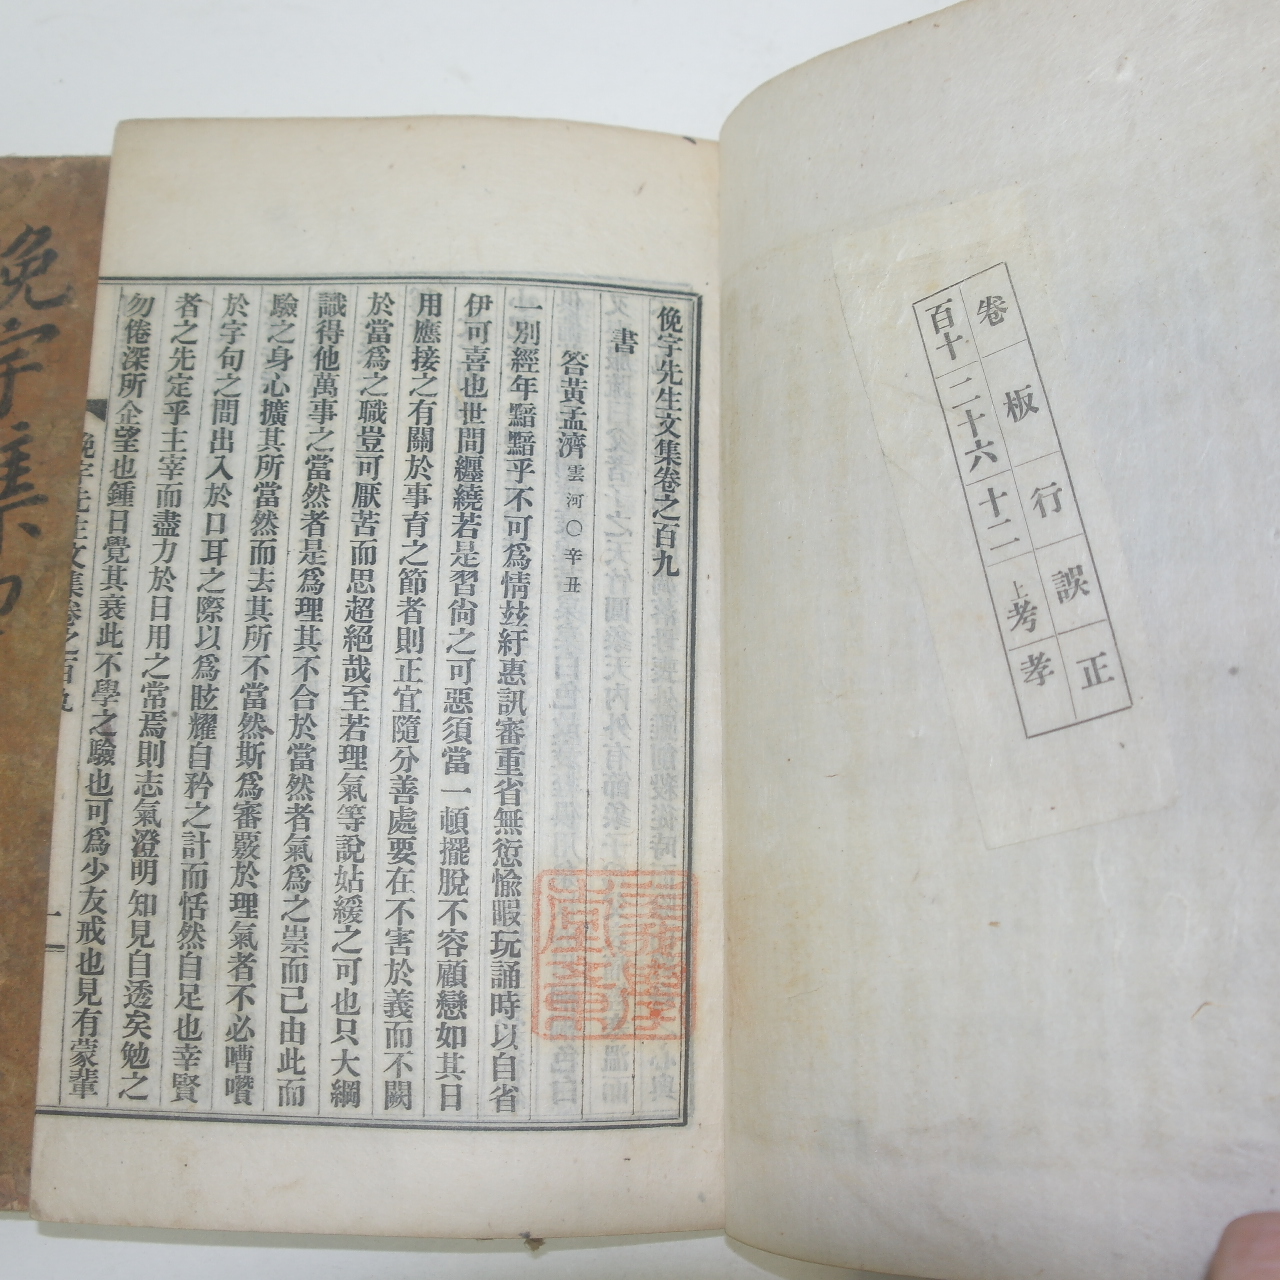 卷 板 行 誤 正
百十 二十六 十二 上 考 孝
俛宇先生文集卷之百九
書
答黃孟濟 雲河○辛丑
一別經年黯黯乎不可爲情玆紆惠訊審重省無愆愉暇玩誦時以自省
伊可喜也世間纏繞若是習尙之可惡須當一頓擺脫不容顧戀如其日
用應接之有關於事育之節者則正宜隨分善處要在不害於義而不闕
於當爲之職豈可厭苦而思超絕哉至若理氣等說姑緩之可也只大綱
識得他萬事之當然者是爲理其不合於當然者氣爲之祟而已由此而
驗之身心擴其所當然而去其所不當然斯爲審覈於理氣者不必嘈囋
於字句之間出入於口耳之際以爲眩耀自矜之計而恬然自足也幸賢
者之先定乎主宰而盡力於日用之常焉則志氣澄明知見自透矣勉之
勿倦深所企望也鍾日覺其衰此不學之驗也可爲少友戒也見有蒙輩
俛宇先生文集卷之百九
一
俛宇集